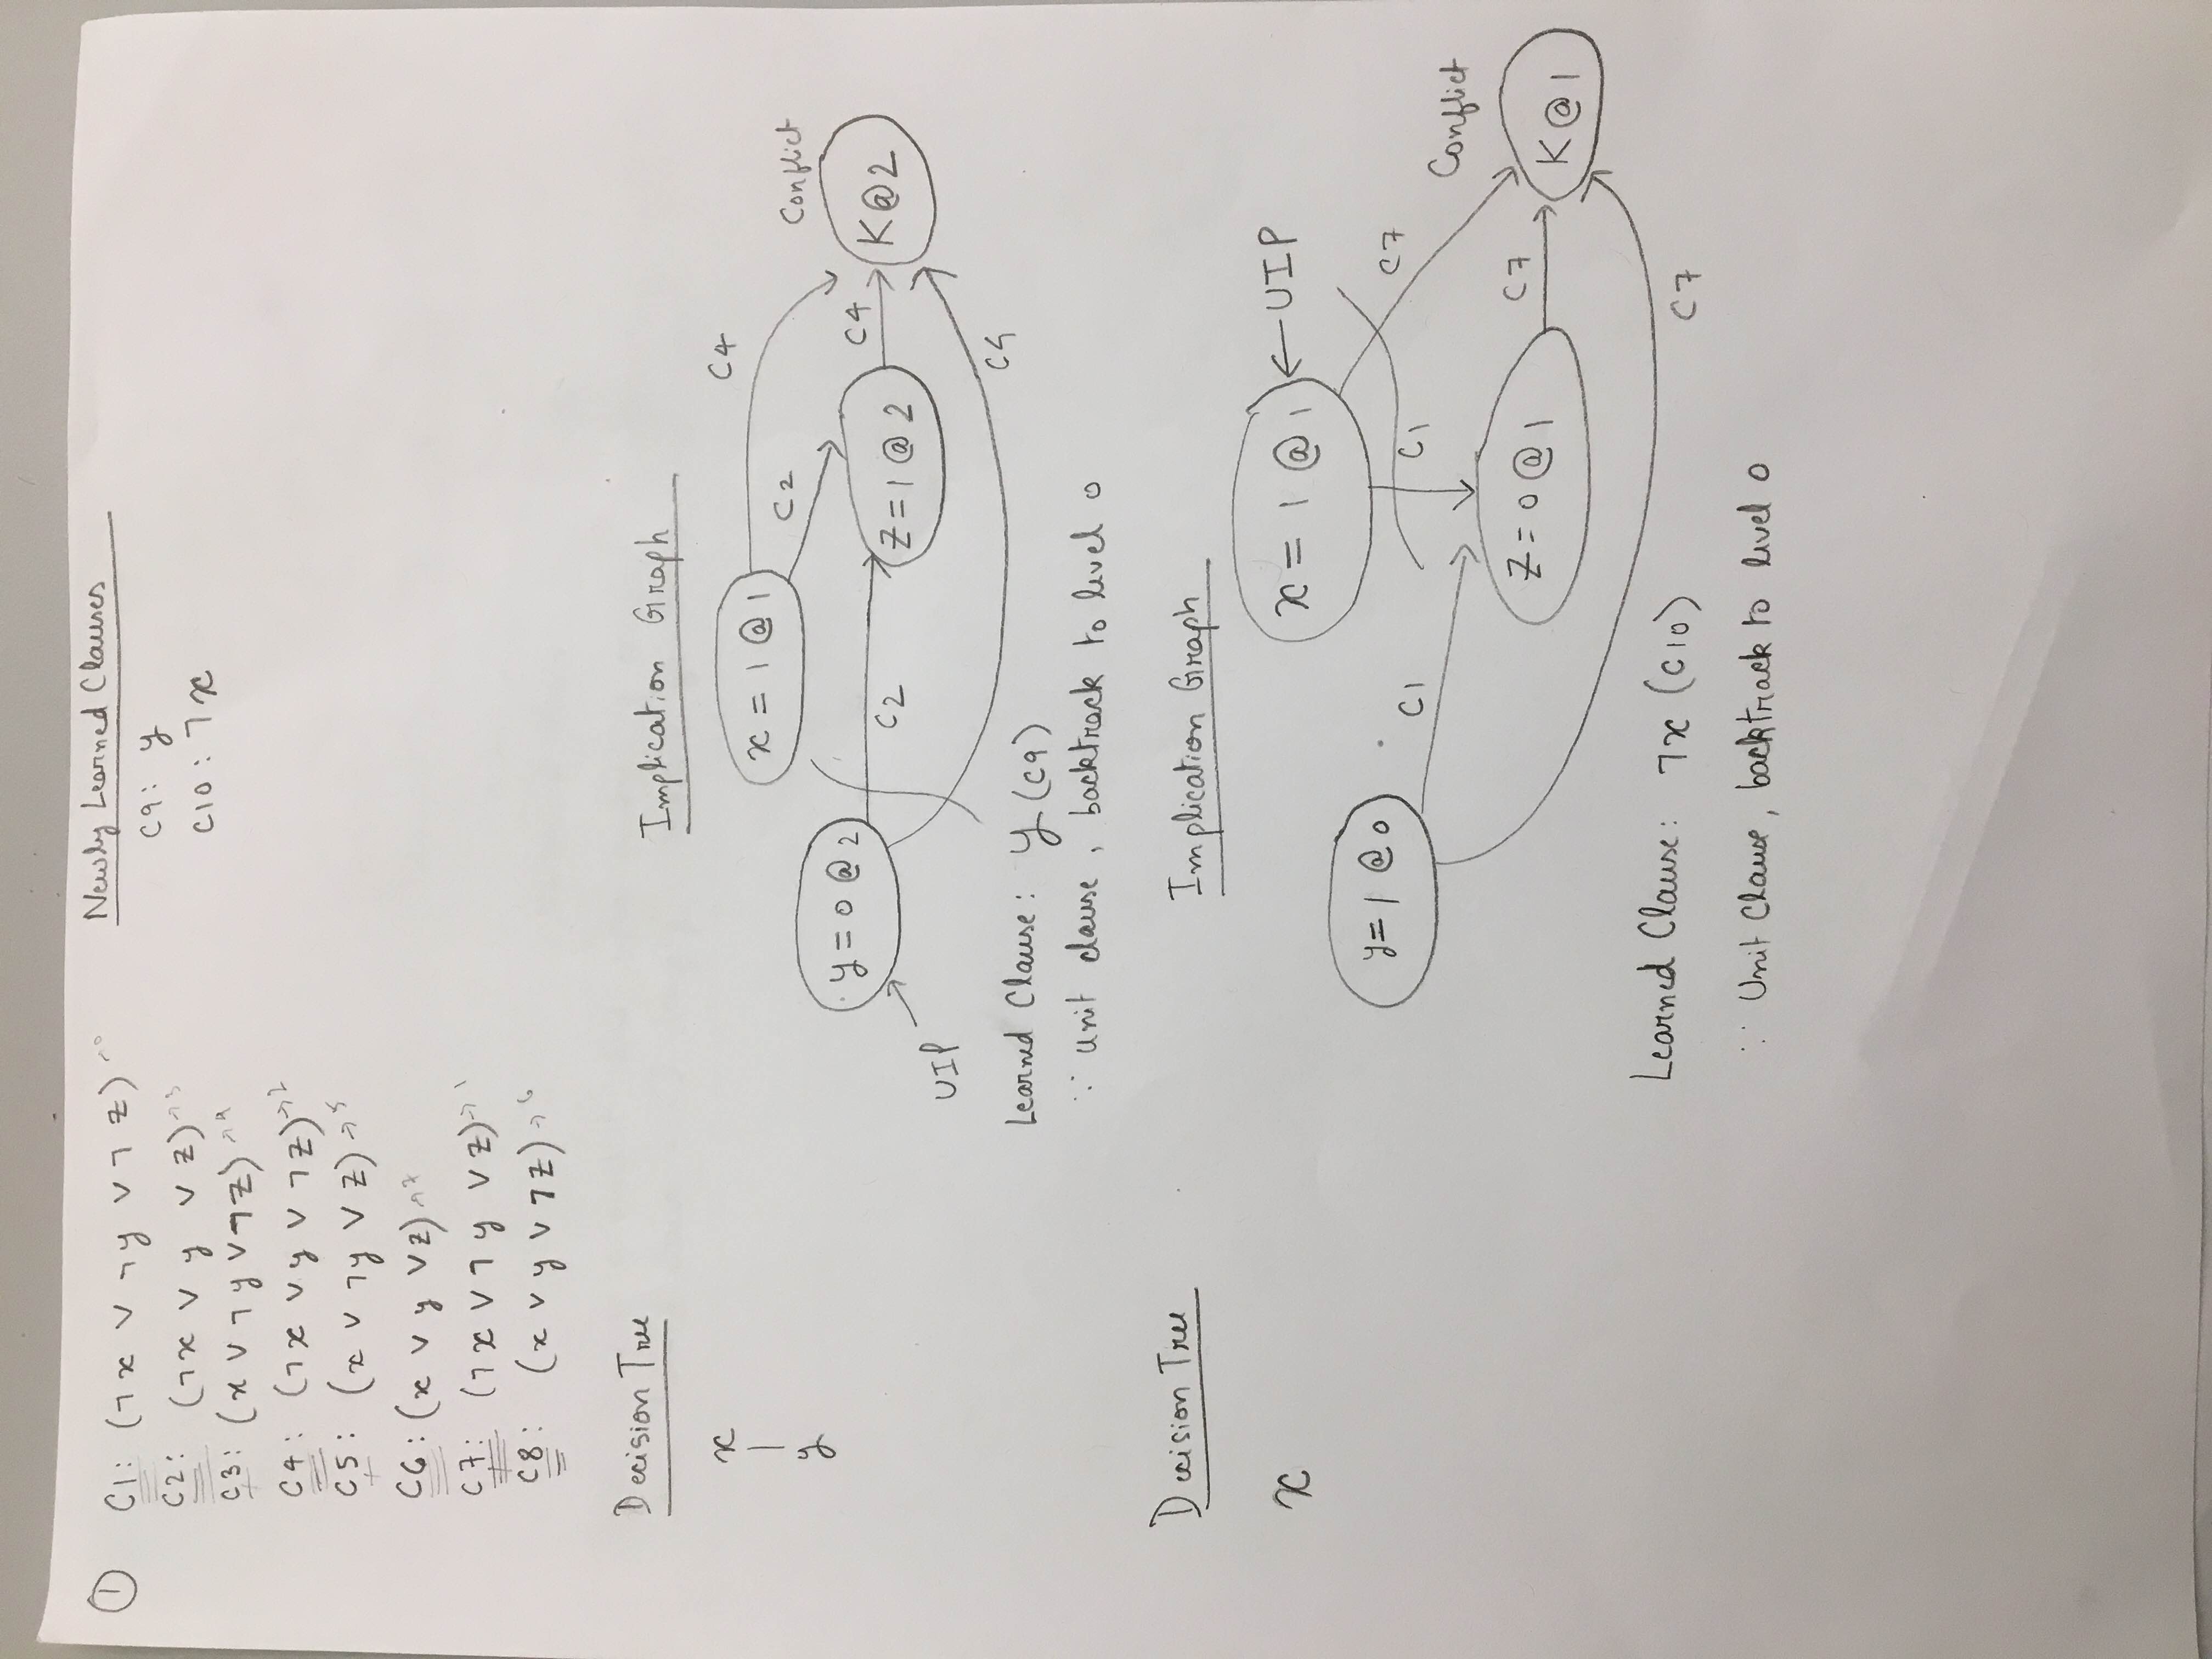 ①
C1: (¬x ∨ ¬y ∨ ¬z) →0
C2: (¬x ∨ y ∨ z) →3
C3: (x ∨ ¬y ∨ ¬z) →4
C4: (¬x ∨ y ∨ ¬z) →2
C5: (x ∨ ¬y ∨ z) →5
C6: (x ∨ y ∨ z) →7
C7: (¬x ∨ ¬y ∨ z) →1
C8: (x ∨ y ∨ ¬z) →6
Newly Learned Clauses
C9: y
C10: ¬x
Decision Tree
x
y
Implication Graph
C4
x = 1 @ 1
C2
Conflict
y = 0 @ 2
C4
C2
z = 1 @ 2
K@2
UIP
C4
Learned Clause: y (C9)
∵ unit clause, backtrack to level 0
Decision Tree
x
Implication Graph
x = 1 @ 1
←UIP
y = 1 @ 0
C1
C1
C7
Conflict
z = 0 @ 1
C7
K@1
Learned Clause: ¬x (C10)
C7
∵ Unit Clause, backtrack to level 0